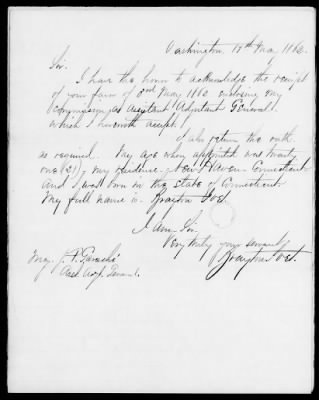 Washington 17th May 1862.
Sir.
I have the honor to acknowledge the receipt
of your favor of 3rd May 1862 enclosing my
commission as Assistant Adjutant General
which I herewith accept.
I also return the oath
as required. My age when appointed was twenty
one (21), my residence New Haven Connecticut
and I was born in the state of Connecticut
My full name is. Brayton Ives.
I Am, Sir,
Very truly your servant
Brayton Ives.
Maj. J. P. Garesché
Asst. Adjt. General.